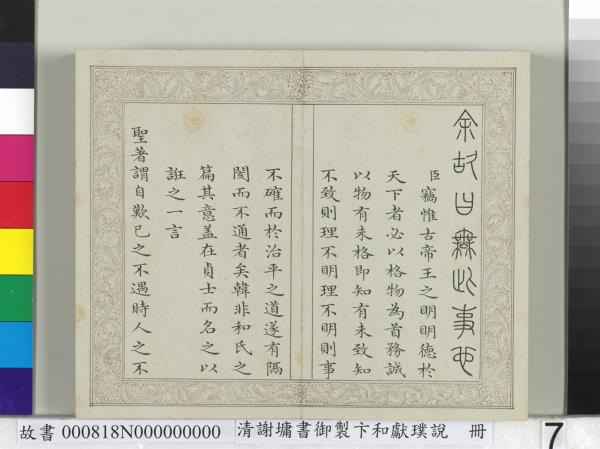 余故曰無此事也
臣竊惟古帝王之明明德於
天下者必以格物為首務誠
以物有未格即知有未致知
不致則理不明理不明則事
不確而於治平之道遂有隔
閡而不通者矣韓非和氏之
篇其意蓋在貞士而名之以
誑之一言
聖著謂自歎己之不遇時人之不
故書 000818N000000000 清謝墉書御製卞和獻璞說 冊
7